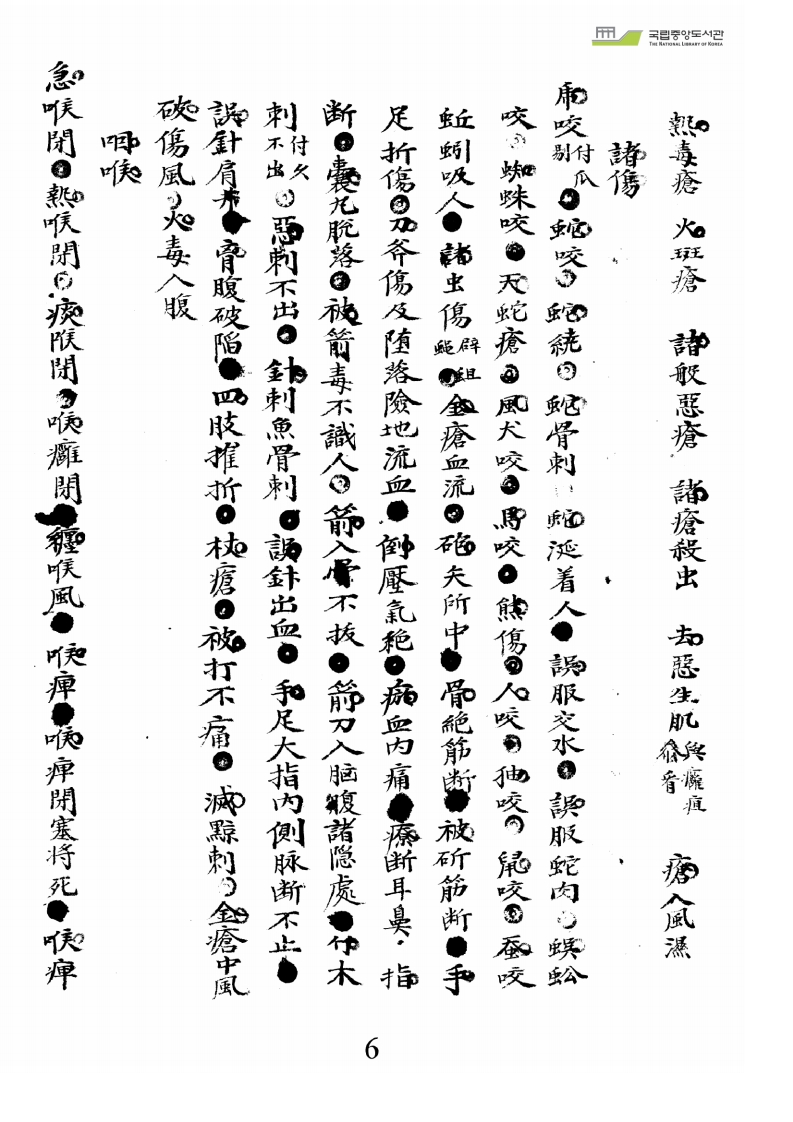 국립중앙도서관
THE NATIONAL LIBRARY OF KOREA
熱毒瘡 火斑瘡 諸般惡瘡 諸瘡殺虫 去惡生肌 與癰疽叅看 瘡入風濕
諸傷
咬付爪剔 蛇咬 蛇繞 蛇骨刺 蛇涎着人 誤服交水 誤服蛇肉 蜈蚣
咬 蜘蛛咬 天蛇瘡 風犬咬 馬咬 熊傷 人咬 咬 鼠咬 蚕咬
蚯蚓吸人 諸虫傷 金瘡血流 砲矢所中 骨絶筋断 被斫筋断 手
足折傷 刀斧傷及堕落險地流血 倒壓氣絶 瘀血内痛 療断耳鼻 指
断 囊丸脱落 被箭毒不識人 箭入骨不拔 箭刀入脑腹諸隐處 竹木
刺不出付欠 惡刺不出 針刺魚骨刺 誤針出血 手足大指内側脉断不止
誤針肩井 胷腹破陷 四肢摧折 杖瘡 被打不痛 滅黥刺 金瘡中風
破傷風 火毒入腹
咽喉
急喉閉 熱喉閉 痰喉閉 喉癰閉 纏喉風 喉痺 喉痺閉塞将死 喉痺
6